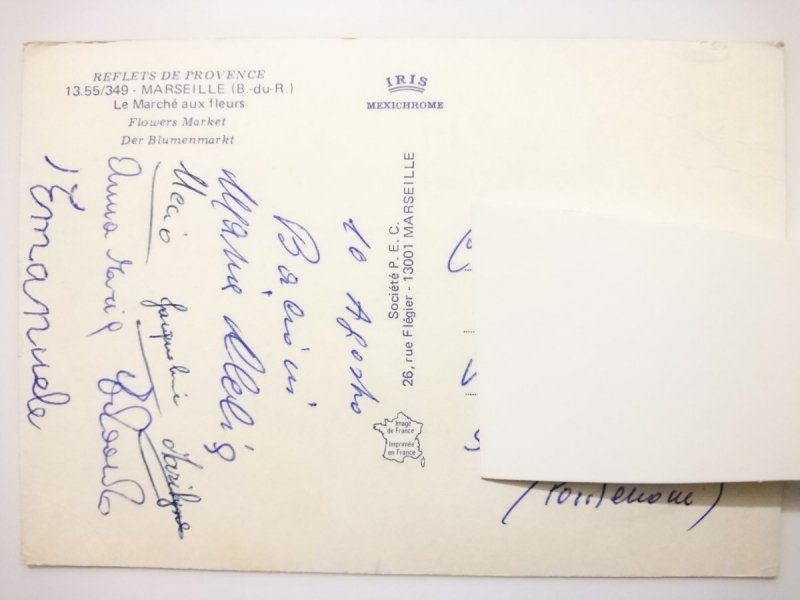 REFLETS DE PROVENCE
13.55/349 - MARSEILLE (B.-du-R.)
Le Marché aux fleurs
Flowers Market
Der Blumenmarkt
IRIS
MEXICHROME
Société P.E.C.
26, rue Flégier - 13001 MARSEILLE
Image
de France
Imprimée
en France
10 Agosto
Bacioni
Maria
Jacqueline Marilyne
Anna Maria
Emanuele